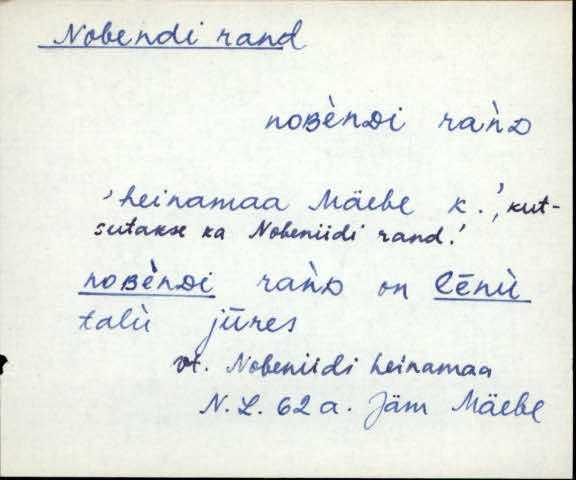 Nobendi rand
noʙènᴅi rəǹᴅ
'heinamaa Mäebe k.', kut-
sutakse ka Nobeniidi rand.'
noʙèǹᴅi raǹᴅ on Lēnù
talù jūres
vt. Nobeniidi heinamaa
N. L. 62 a. Jäm Mäebe